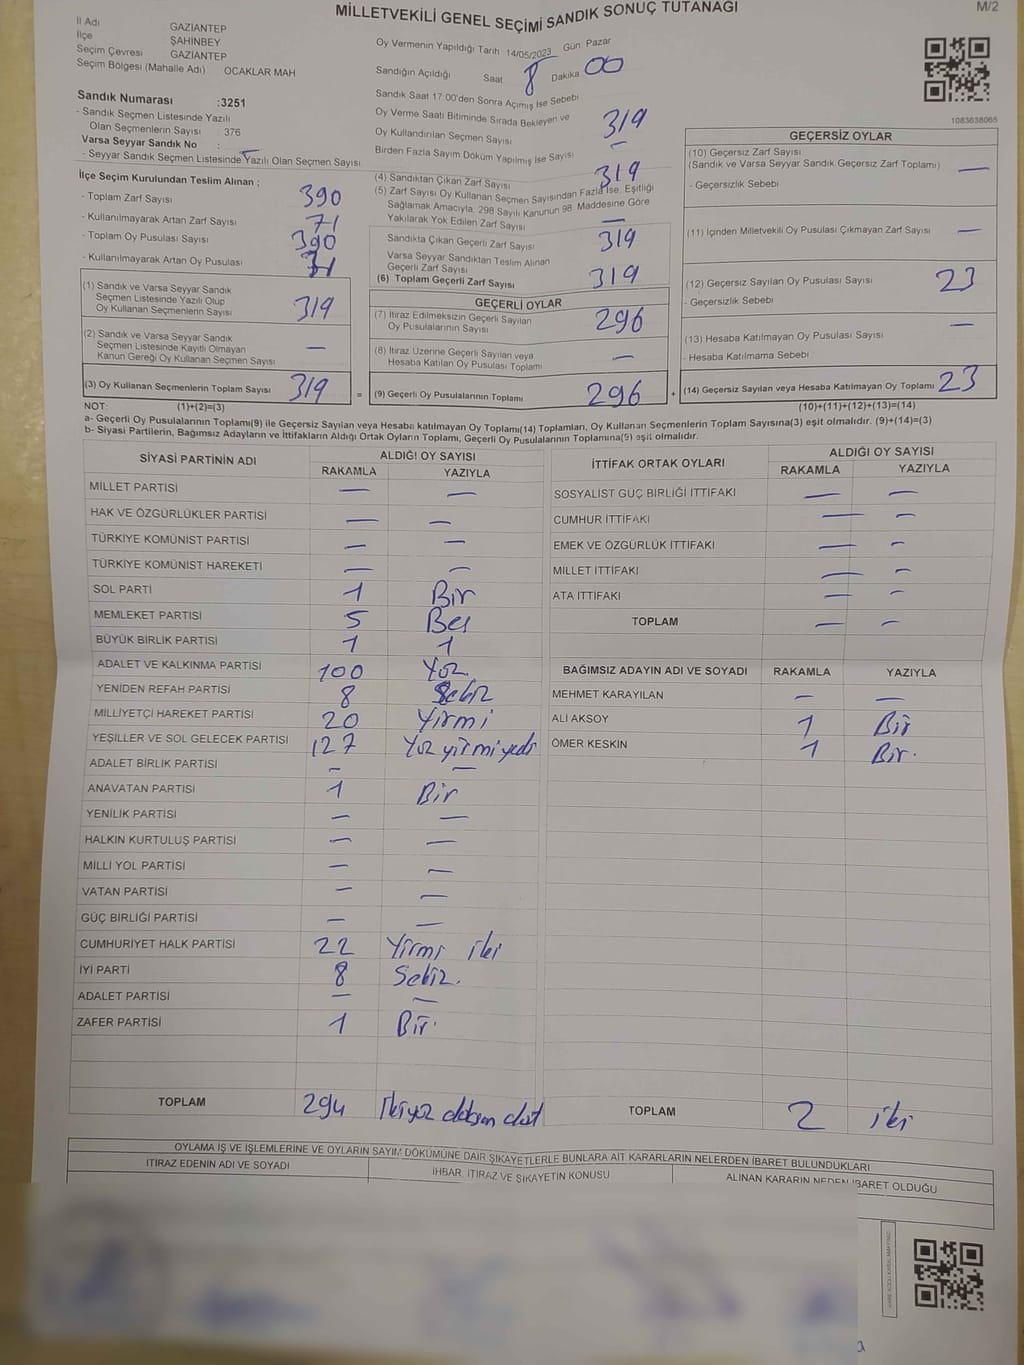 MİLLETVEKİLİ GENEL SEÇİMİ SANDIK SONUÇ TUTANAĞI
M/2
İl Adı GAZİANTEP
İlçe ŞAHİNBEY
Seçim Çevresi GAZİANTEP
Seçim Bölgesi (Mahalle Adı) OCAKLAR MAH
Sandık Numarası :3251
- Sandık Seçmen Listesinde Yazılı
Olan Seçmenlerin Sayısı : 376
Varsa Seyyar Sandık No : -
- Seyyar Sandık Seçmen Listesinde Yazılı Olan Seçmen Sayısı
İlçe Seçim Kurulundan Teslim Alınan ;
- Toplam Zarf Sayısı 390
- Kullanılmayarak Artan Zarf Sayısı 71
- Toplam Oy Pusulası Sayısı 390
- Kullanılmayarak Artan Oy Pusulası 71
(1) Sandık ve Varsa Seyyar Sandık
Seçmen Listesinde Yazılı Olup
Oy Kullanan Seçmenlerin Sayısı 319
(2) Sandık ve Varsa Seyyar Sandık
Seçmen Listesinde Kayıtlı Olmayan
Kanun Gereği Oy Kullanan Seçmen Sayısı —
(3) Oy Kullanan Seçmenlerin Toplam Sayısı 319 =
Oy Vermenin Yapıldığı Tarih 14/05/2023 Gün Pazar
Sandığın Açıldığı Saat 8 Dakika 00
Sandık Saat 17:00'den Sonra Açımış İse Sebebi
Oy Verme Saati Bitiminde Sırada Bekleyen ve
Oy Kullandırılan Seçmen Sayısı 319
Birden Fazla Sayım Döküm Yapılmış İse Sayısı —
(4) Sandıktan Çıkan Zarf Sayısı 319
(5) Zarf Sayısı Oy Kullanan Seçmen Sayısından Fazla İse, Eşitliği
Sağlamak Amacıyla, 298 Sayılı Kanunun 98. Maddesine Göre
Yakılarak Yok Edilen Zarf Sayısı —
Sandıkta Çıkan Geçerli Zarf Sayısı 319
Varsa Seyyar Sandıktan Teslim Alınan
Geçerli Zarf Sayısı
(6) Toplam Geçerli Zarf Sayısı 319
GEÇERLİ OYLAR
(7) İtiraz Edilmeksizin Geçerli Sayılan
Oy Pusulalarının Sayısı 296
(8) İtiraz Üzerine Geçerli Sayılan veya
Hesaba Katılan Oy Pusulası Toplamı —
(9) Geçerli Oy Pusulalarının Toplamı 296 +
1083638065
GEÇERSİZ OYLAR
(10) Geçersiz Zarf Sayısı
(Sandık ve Varsa Seyyar Sandık Geçersiz Zarf Toplamı) —
- Geçersizlik Sebebi
(11) İçinden Milletvekili Oy Pusulası Çıkmayan Zarf Sayısı —
(12) Geçersiz Sayılan Oy Pusulası Sayısı 23
- Geçersizlik Sebebi
(13) Hesaba Katılmayan Oy Pusulası Sayısı —
- Hesaba Katılmama Sebebi
(14) Geçersiz Sayılan veya Hesaba Katılmayan Oy Toplamı 23
NOT: (1)+(2)=(3) (10)+(11)+(12)+(13)=(14)
a- Geçerli Oy Pusulalarının Toplamı(9) ile Geçersiz Sayılan veya Hesaba katılmayan Oy Toplamı(14) Toplamları, Oy Kullanan Seçmenlerin Toplam Sayısına(3) eşit olmalıdır. (9)+(14)=(3)
b- Siyasi Partilerin, Bağımsız Adayların ve İttifakların Aldığı Ortak Oyların Toplamı, Geçerli Oy Pusulalarının Toplamına(9) eşit olmalıdır.
SİYASİ PARTİNİN ADI ALDIĞI OY SAYISI
RAKAMLA YAZIYLA
MİLLET PARTİSİ — —
HAK VE ÖZGÜRLÜKLER PARTİSİ — —
TÜRKİYE KOMÜNİST PARTİSİ — —
TÜRKİYE KOMÜNİST HAREKETİ — —
SOL PARTİ 1 Bir
MEMLEKET PARTİSİ 5 Beş
BÜYÜK BİRLİK PARTİSİ 1 1
ADALET VE KALKINMA PARTİSİ 100 Yüz.
YENİDEN REFAH PARTİSİ 8 Sekiz
MİLLİYETÇİ HAREKET PARTİSİ 20 Yirmi
YEŞİLLER VE SOL GELECEK PARTİSİ 127 Yüz yirmi yedi
ADALET BİRLİK PARTİSİ — —
ANAVATAN PARTİSİ 1 Bir
YENİLİK PARTİSİ — —
HALKIN KURTULUŞ PARTİSİ — —
MİLLİ YOL PARTİSİ — —
VATAN PARTİSİ — —
GÜÇ BİRLİĞİ PARTİSİ — —
CUMHURİYET HALK PARTİSİ 22 Yirmi iki
İYİ PARTİ 8 Sekiz.
ADALET PARTİSİ — —
ZAFER PARTİSİ 1 Bir.
TOPLAM 294 İkiyüz doksan dört
İTTİFAK ORTAK OYLARI ALDIĞI OY SAYISI
RAKAMLA YAZIYLA
SOSYALİST GÜÇ BİRLİĞİ İTTİFAKI — —
CUMHUR İTTİFAKI — —
EMEK VE ÖZGÜRLÜK İTTİFAKI — —
MİLLET İTTİFAKI — —
ATA İTTİFAKI — —
TOPLAM — —
BAĞIMSIZ ADAYIN ADI VE SOYADI RAKAMLA YAZIYLA
MEHMET KARAYILAN — —
ALİ AKSOY 1 Bir
ÖMER KESKİN 1 Bir.
TOPLAM 2 iki
OYLAMA İŞ VE İŞLEMLERİNE VE OYLARIN SAYIM DÖKÜMÜNE DAİR ŞİKAYETLERLE BUNLARA AİT KARARLARIN NELERDEN İBARET BULUNDUKLARI
İTİRAZ EDENİN ADI VE SOYADI İHBAR, İTİRAZ VE ŞİKAYETİN KONUSU ALINAN KARARIN NEDEN İBARET OLDUĞU